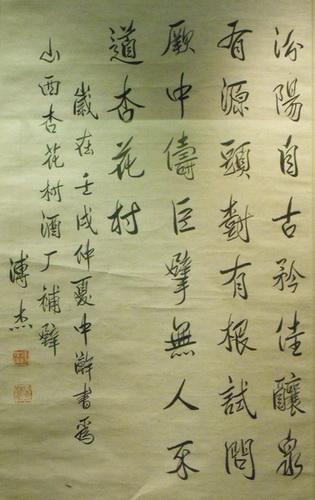 汾陽自古矜佳釀泉
有源頭樹有根試問
厥中儔巨擘無人不
道杏花村
歲在壬戌仲夏中澣書爲
山西杏花村酒厂補壁
溥杰